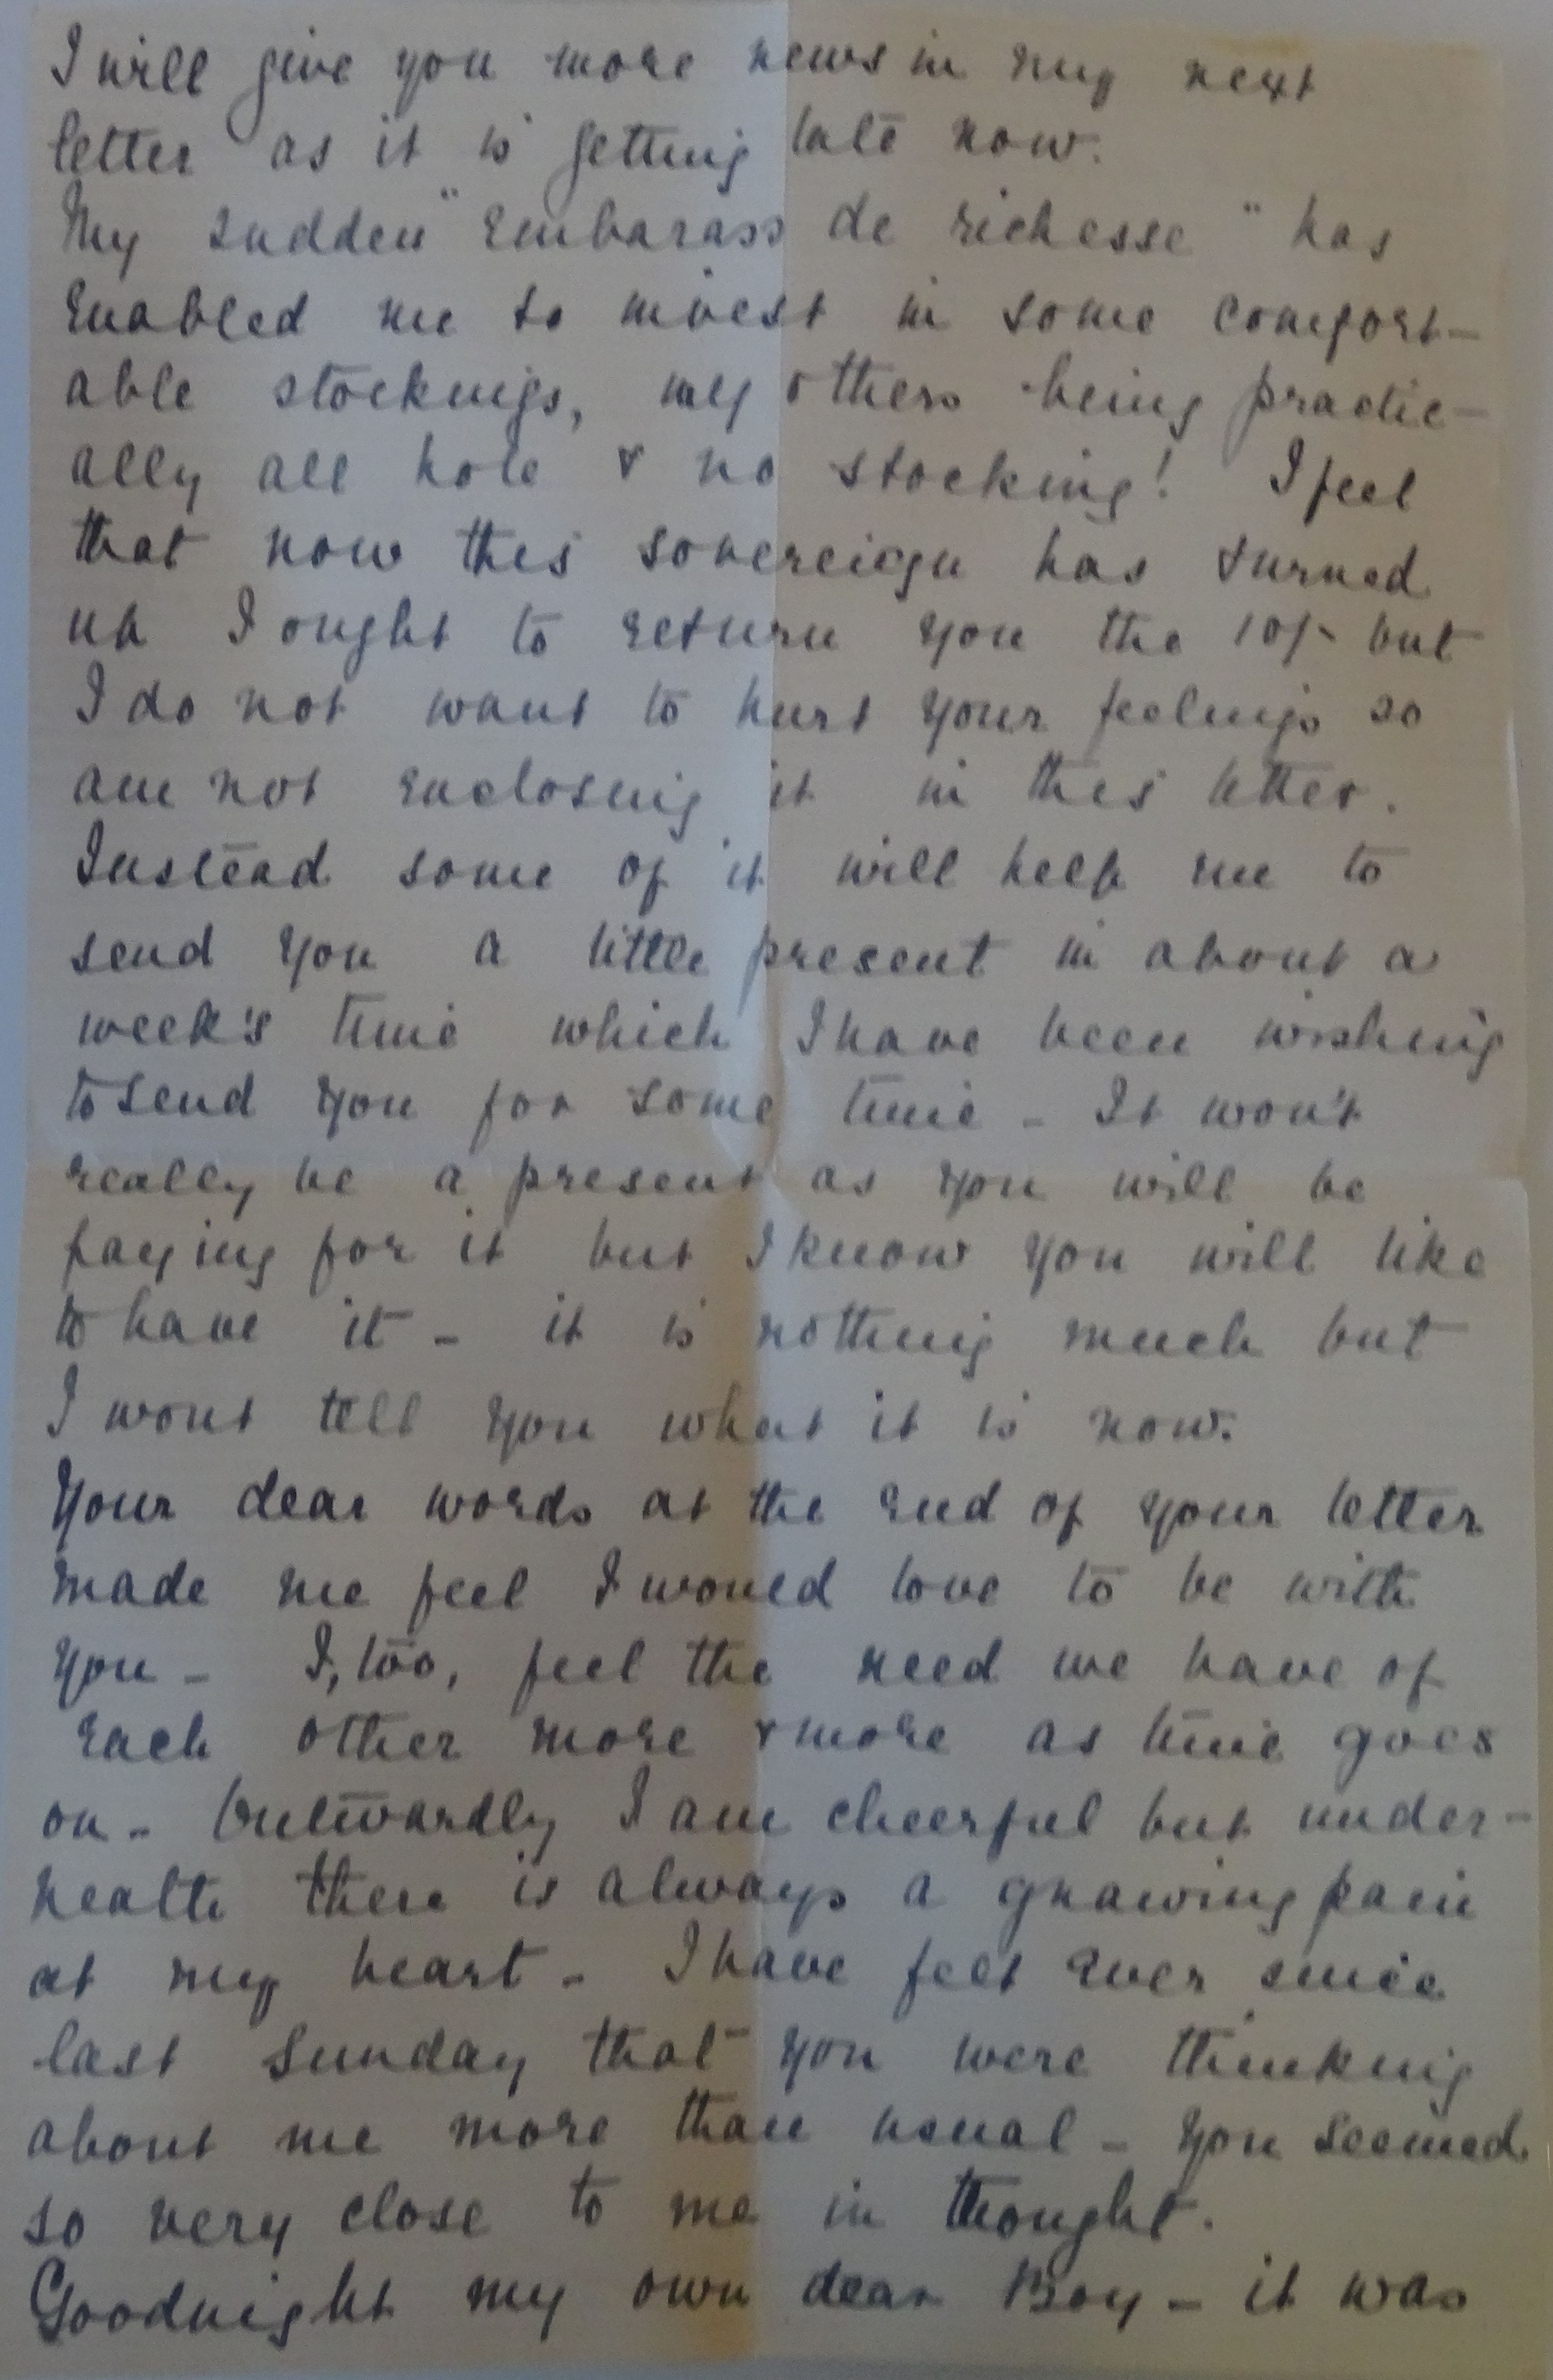 I will give you more news in my next
letter as it is getting late now.
My sudden "embarass de richesse" has
enabled me to invest in some comfort-
able stockings, my others being practic-
ally all hole & no stocking! I feel
that now this sovereign has turned
up I ought to return you the 10/- but
I do not want to hurt your feelings so
am not enclosing it in this letter.
Instead some of it will help me to
send you a little present in about a
week's time which I have been wishing
to send you for some time - It won't
really be a present as you will be
paying for it but I know you will like
to have it - it is nothing much but
I wont tell you what it is now.
Your dear words at the end of your letter
made me feel I would love to be with
you - I, too, feel the need we have of
each other more & more as time goes
on - Outwardly I am cheerful but under-
neath there is always a gnawing pain
at my heart - I have felt ever since
last Sunday that you were thinking
about me more than usual - you seemed
so very close to me in thought.
Goodnight my own dear Boy - it was